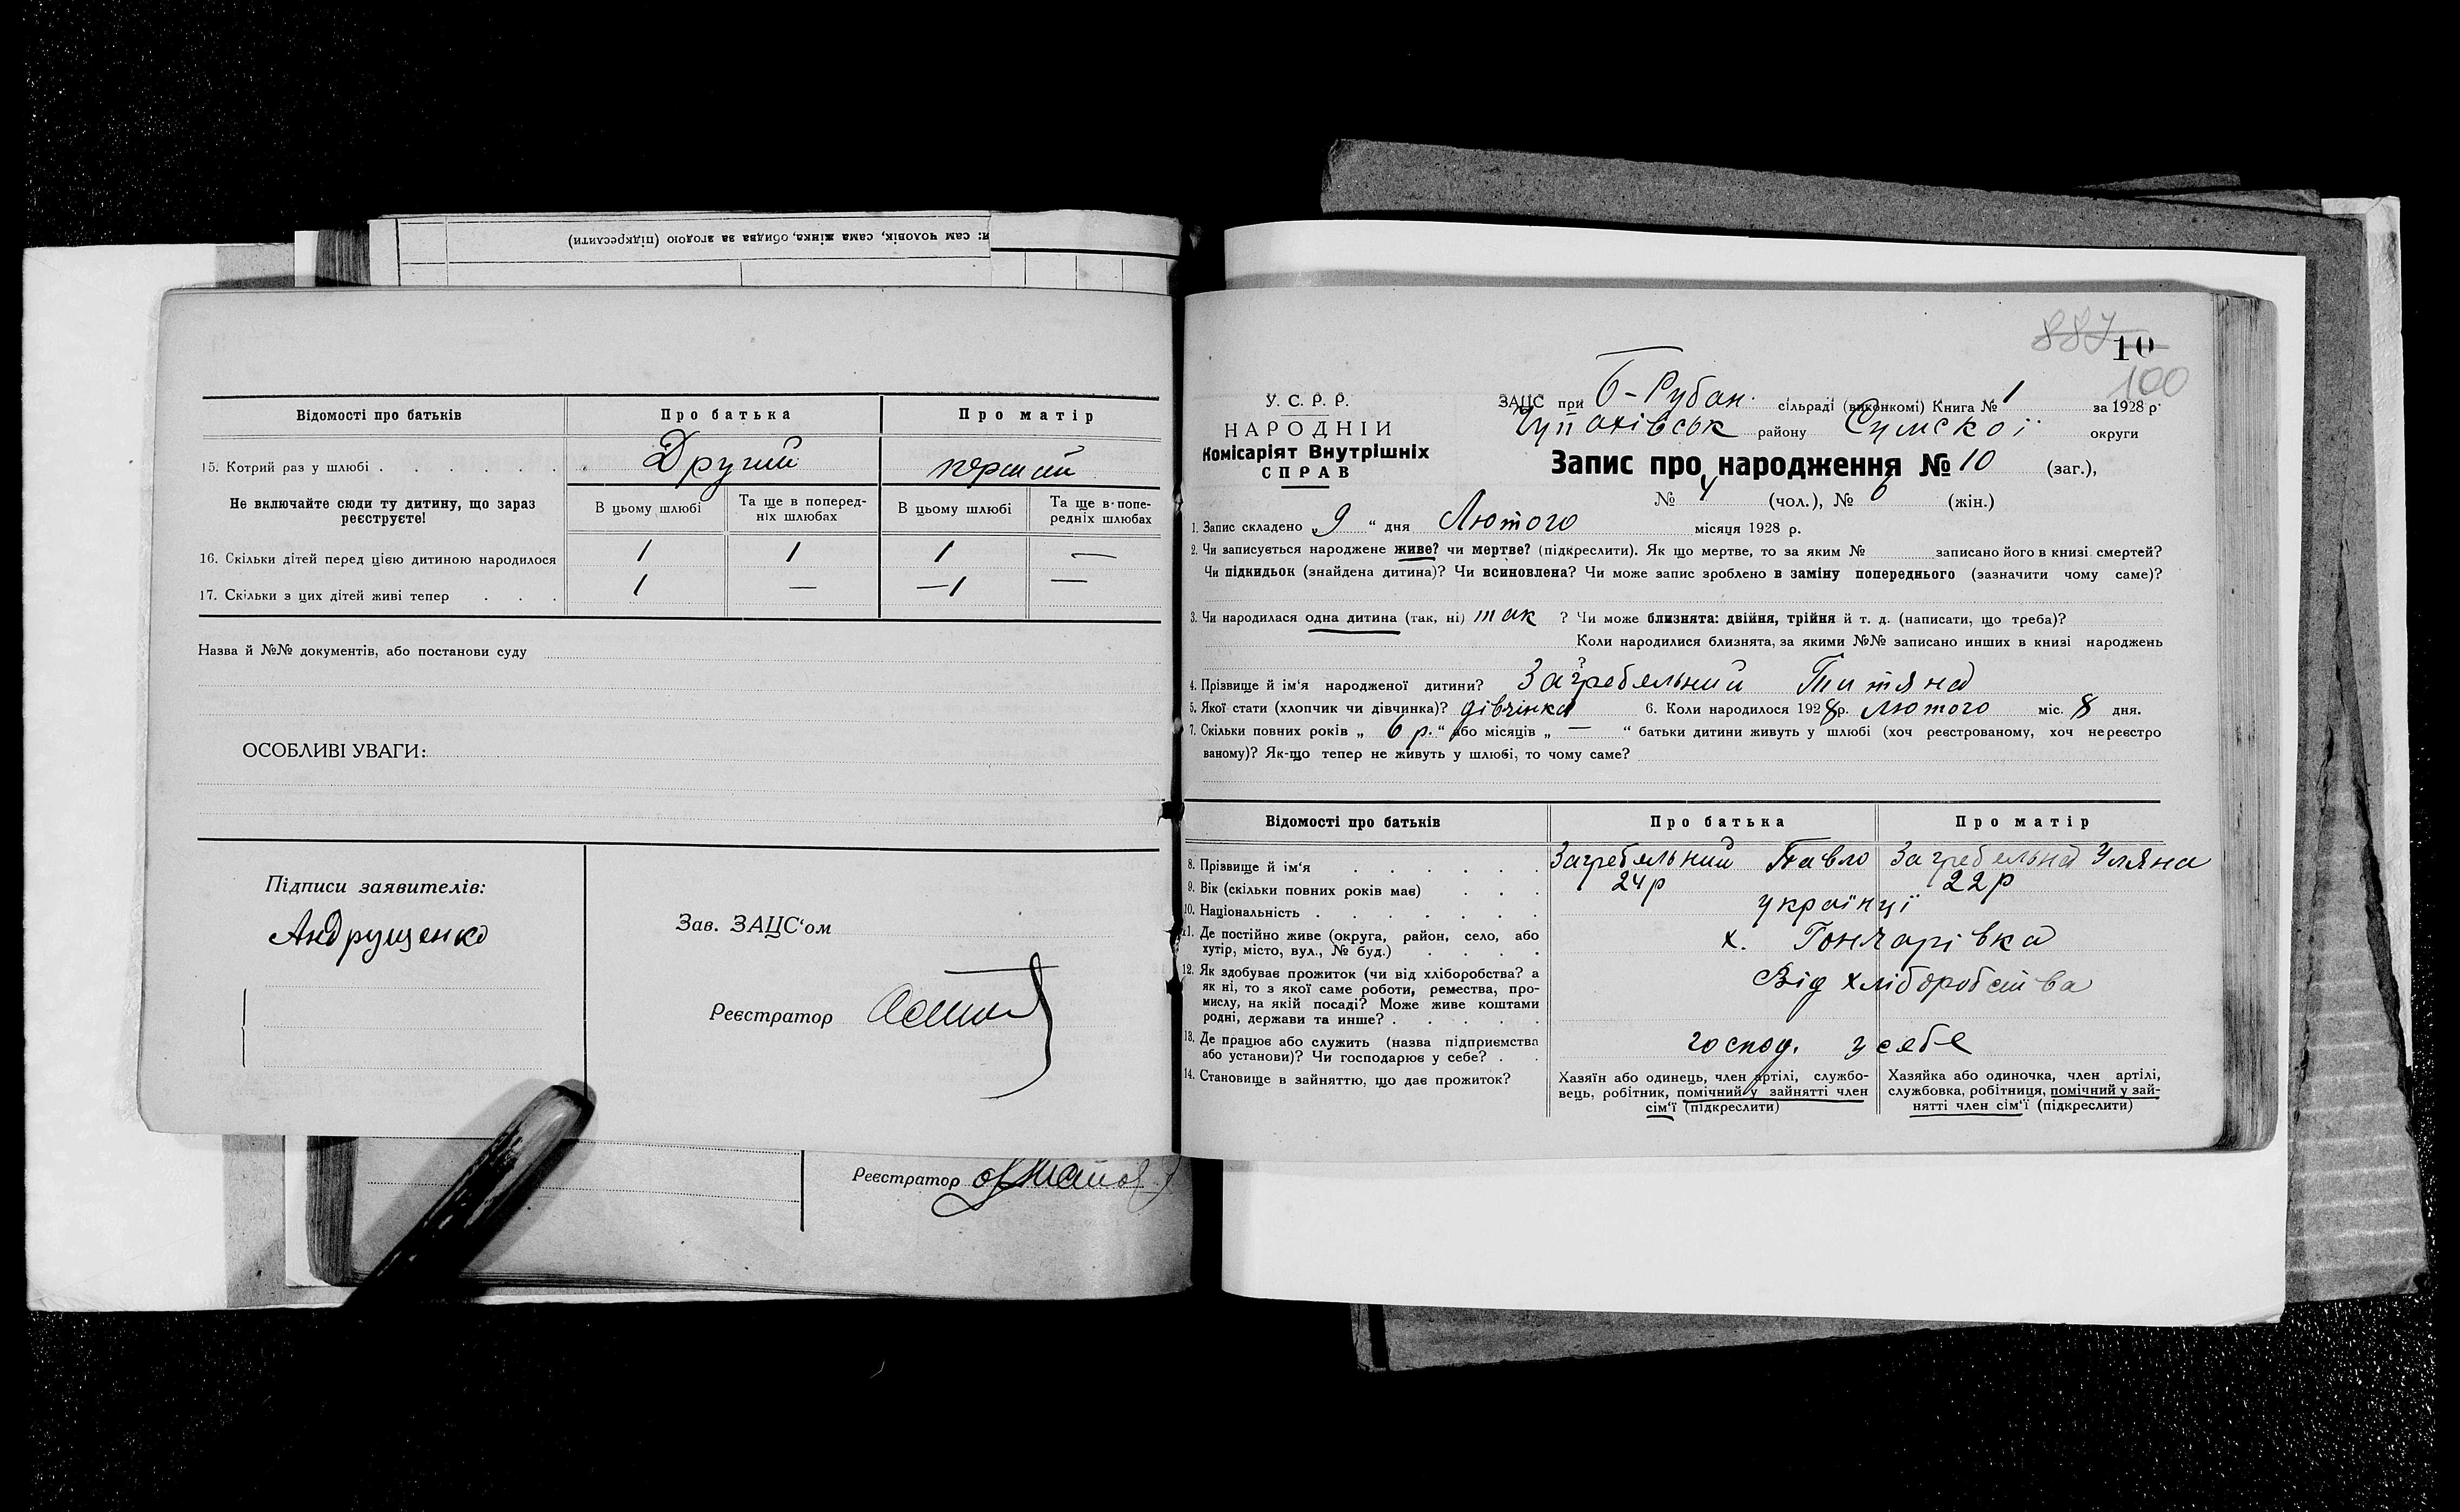 и: сам чоловік, сама жінка, обидва за згодою (підкреслити)
Відомості про батьків Про батька Про матір
15. Котрий раз у шлюбі . . . . . . . Другий перший
Не включайте сюди ту дитину, що зараз реєструєте!
В цьому шлюбі Та ще в поперед-ніх шлюбах В цьому шлюбі Та ще в попе-редніх шлюбах
16. Скільки дітей перед цією дитиною народилося 1 1 1 —
17. Скільки з цих дітей живі тепер . . . 1 — —1 —
Назва й №№ документів, або постанови суду
ОСОБЛИВІ УВАГИ:
Підписи заявителів:
Андрущенко
Зав. ЗАЦС‘ом
Реєстратор
Реєстратор
887 10
100
У. С. Р. Р.
НАРОДНІЙ
Комісаріят Внутрішніх
СПРАВ
ЗАЦС при Б-Рубан. сільраді (виконкомі) Книга № 1 за 1928 р.
Чупахівськ району Сумської округи
Запис про народження № 10 (заг.),
№ 4 (чол.), № 6 (жін.)
1. Запис складено „9 “ дня Лютого місяця 1928 р.
2. Чи записується народжене живе? чи мертве? (підкреслити). Як що мертве, то за яким № записано його в книзі смертей?
Чи підкидьок (знайдена дитина)? Чи всиновлена? Чи може запис зроблено в заміну попереднього (зазначити чому саме)?
3. Чи народилася одна дитина (так, ні) так ? Чи може близнята: двійня, трійня й т. д. (написати, що треба)?
Коли народилися близнята, за якими №№ записано инших в книзі народжень
?
4. Прізвище й ім‘я народженої дитини? Загребельний Титяна
5. Якої стати (хлопчик чи дівчинка)? дівчінка 6. Коли народилося 1928р. Лютого міс. 8 дня.
7. Скільки повних років „ 6 р. “ або місяців „ — “ батьки дитини живуть у шлюбі (хоч реєстрованому, хоч нереєстро
ваному)? Як-що тепер не живуть у шлюбі, то чому саме?
Відомості про батьків Про батька Про матір
8. Прізвище й ім‘я . . . . . . Загребельний Павло Загребельна Уляна
9. Вік (скільки повних років має) . . . 24р 22р
10. Національність . . . . . . . українці
11. Де постійно живе (округа, район, село, або
хутір, місто, вул., № буд.) . . . . х. Гончарівка
12. Як здобуває прожиток (чи від хліборобства? а
як ні, то з якої саме роботи, ремества, про-
мислу, на якій посаді? Може живе коштами
родні, держави та инше? . . . . . Від хліборобства
13. Де працює або служить (назва підприємства
або установи)? Чи господарює у себе? . . господ. у себе
14. Становище в зайняттю, що дає прожиток?
Хазяїн або одинець, член артілі, службо-
вець, робітник, помічний у зайнятті член
сім‘ї (підкреслити)
Хазяйка або одиночка, член артілі,
службовка, робітниця, помічний у зай-
нятті член сім‘ї (підкреслити)